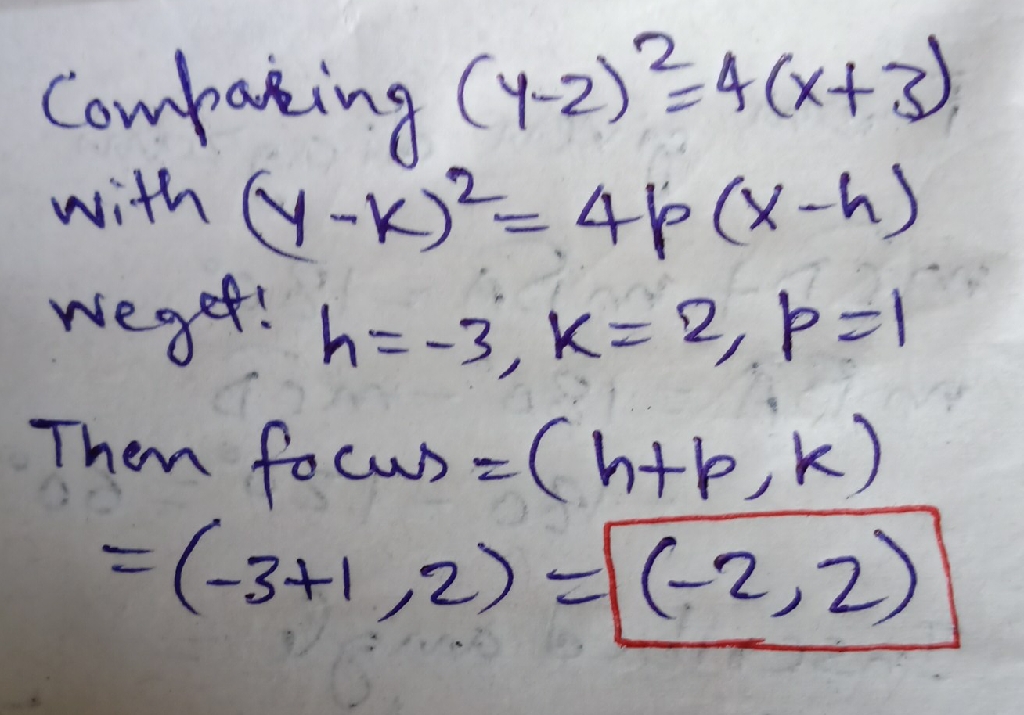 Comparing (y-2)²=4(x+3)
with (y-k)²=4p(x-h)
weget: h=-3, k=2, p=1
Then focus=(h+p,k)
=(-3+1,2)=(-2,2)